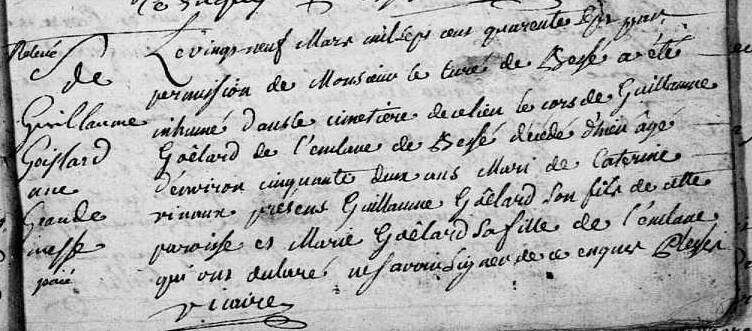 Relevé
de
Guillaume
Goislard
une
Grande
messe
païé
Le vingt neuf Mars mil sept cens quarente sept par
permission de Monsieur le curé de Bessé a été
inhumé dans le cimetière de ce lieu le cors de Guillaume
Goëlard de l'enclave de Bessé décédé d'hier âgé
d'environ cinquante deux ans Mari de Caterine
présens Guillaume Goëlard son fils de cette
paroisse et Marie Goëlard sa fille de l'enclave
qui ont déclaré ne savoir signer de ce enquis
vicaire